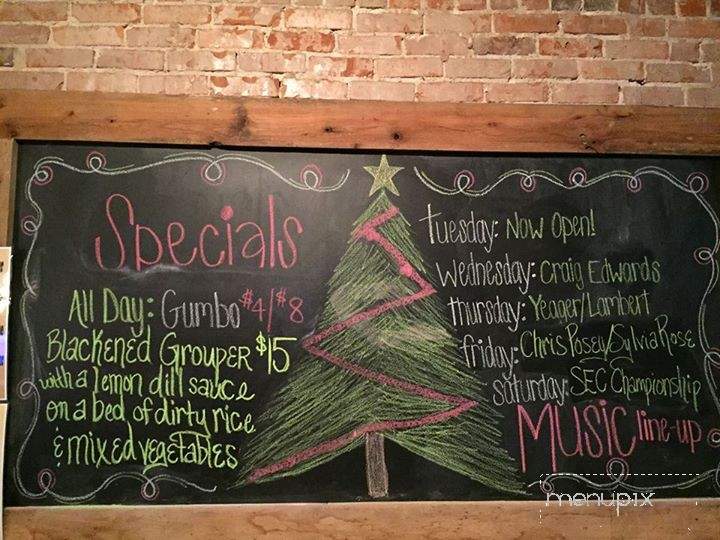 Specials
All Day: Gumbo $4/$8
Blackened Grouper $15
with a lemon dill sauce
on a bed of dirty rice
& mixed vegetables
tuesday: Now Open!
Wednesday: Craig Edwords
thursday: Yeager/Lambert
friday: Chris Posey/Sylvia Rose
saturday: SEC Championship
MUSIC line-up
menupix